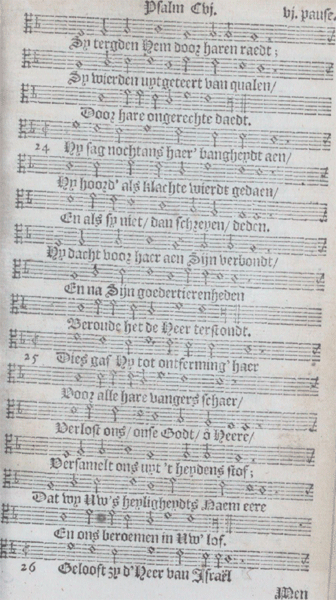 Psalm Cvj. vj. pause.
Sy tergden Hem door haren raedt;
Sy wierden uytgeteert van qualen/
Door hare ongerechte daedt.
24 Hy sag nochtans haer' bangheydt aen/
Hy hoord' als klachte wierdt gedaen/
En als sy niet/ dan schreyen/ deden.
Hy dacht voor haer aen Sijn verbondt/
En na Sijn goedertierenheden
Beroude het de Heer terstondt.
25 Dies gaf Hy tot ontferming' haer
Voor alle hare vangers schaer/
Verlost ons/ onse Godt/ ô Heere/
Versamelt ons uyt 't heydens stof;
Dat wy Uw's heyligheydts Naem eere
En ons beroemen in Uw' lof.
26 Gelooft zy d'Heer van Israël
Men